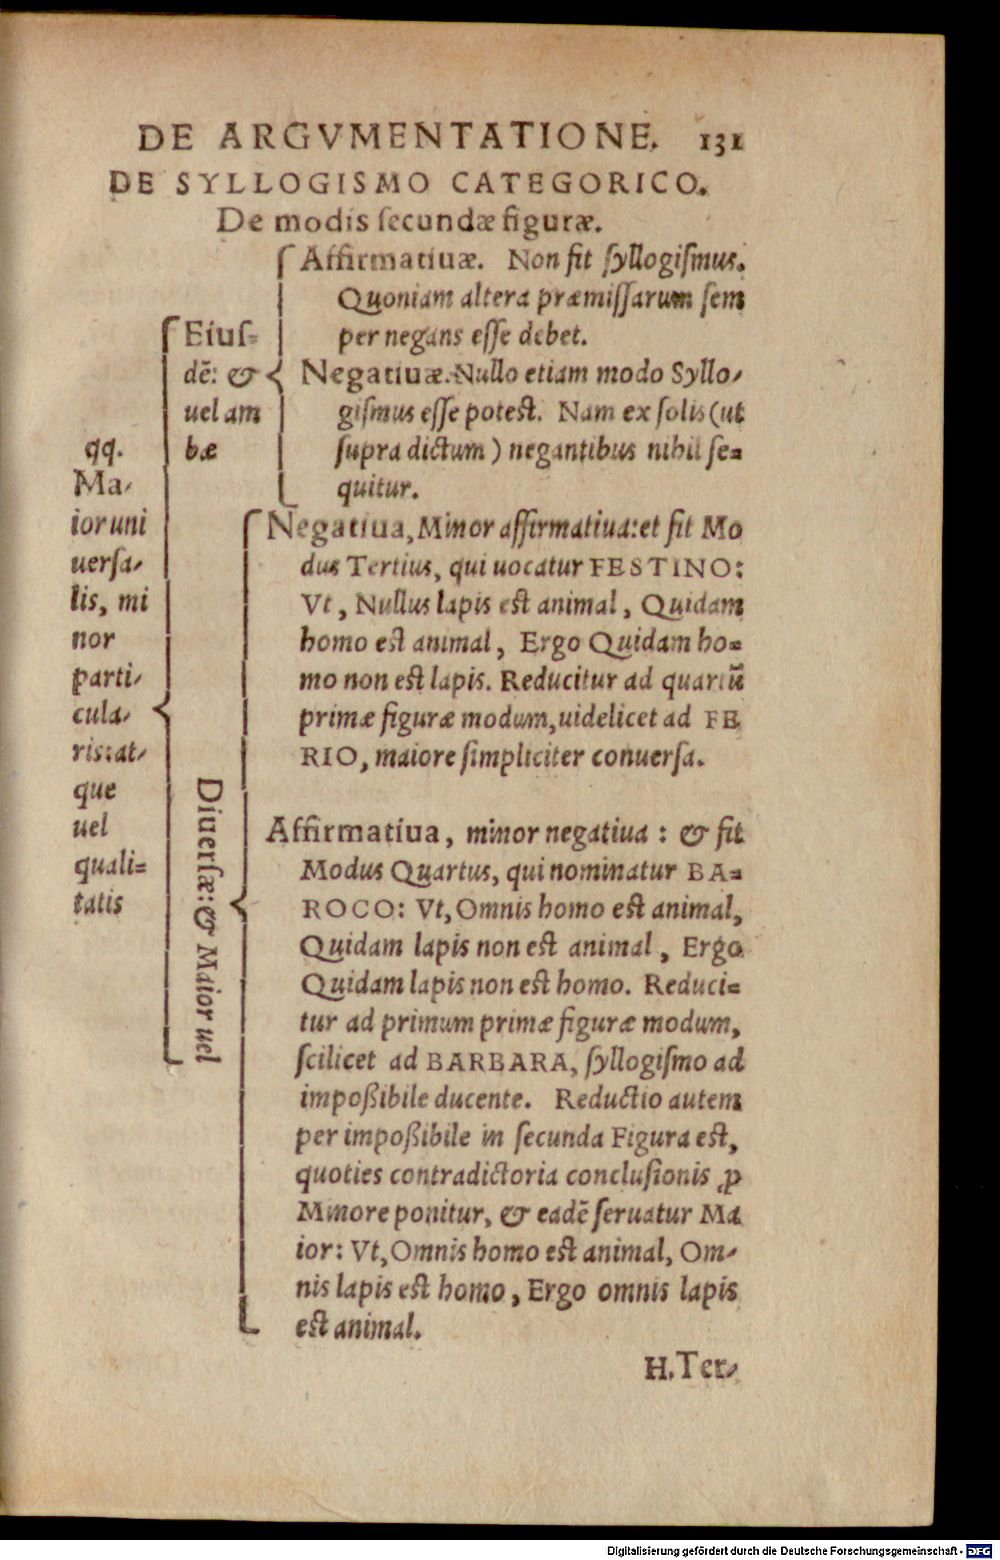 DE ARGVMENTATIONE. 131
DE SYLLOGISMO CATEGORICO.
De modis ſecundæ figuræ.
qq.
Ma⸗
ior uni
uerſa⸗
lis, mi
nor
parti⸗
cula⸗
ris: at⸗
que
uel
quali⸗
tatis
Eiuſ⸗
dẽ: &
uel am
bæ
Affirmatiuæ. Non fit ſyllogiſmus.
Quoniam altera præmiſſarum ſem
per negans eſſe debet.
Negatiuæ. Nullo etiam modo Syllo⸗
giſmus eſſe poteſt. Nam ex ſolis (ut
ſupra dictum) negantibus nihil ſe⸗
quitur.
Diuerſæ: & Maior uel
Negatiua, Minor affirmatiua: et fit Mo
dus Tertius, qui uocatur FESTINO:
Vt, Nullus lapis eſt animal, Quidam
homo eſt animal, Ergo Quidam ho⸗
mo non eſt lapis. Reducitur ad quartũ
primæ figuræ modum, uidelicet ad FE
RIO, maiore ſimpliciter conuerſa.
Affirmatiua, minor negatiua: & fit
Modus Quartus, qui nominatur BA⸗
ROCO: Vt, Omnis homo eſt animal,
Quidam lapis non eſt animal, Ergo
Quidam lapis non eſt homo. Reduci⸗
tur ad primum primæ figuræ modum,
ſcilicet ad BARBARA, ſyllogiſmo ad
impoßibile ducente. Reductio autem
per impoßibile in ſecunda Figura eſt,
quoties contradictoria concluſionis ꝓ
Minore ponitur, & eadẽ ſeruatur Ma
ior: Vt, Omnis homo eſt animal, Om⸗
nis lapis eſt homo, Ergo omnis lapis
eſt animal.
H. Ter⸗
Digitalisierung gefördert durch die Deutsche Forschungsgemeinschaft - DFG